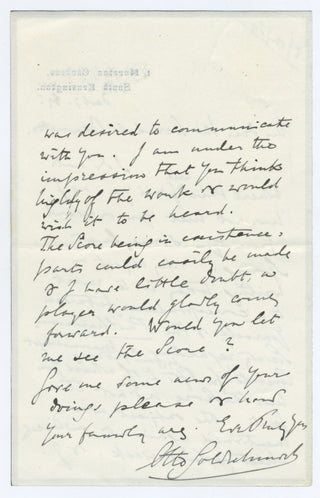 was desired to communicate
with you. I am under the
impression that you think
highly of the work & would
wish it to be heard.
The Score being in existence,
parts could easily be made
& I have little doubt, a
player would gladly come
forward. Would you let
me see the Score?
Give me some news of your
doings please & how
your family are. Ever truly yrs
Otto Goldschmidt
Moreton Gardens,
South Kensington.